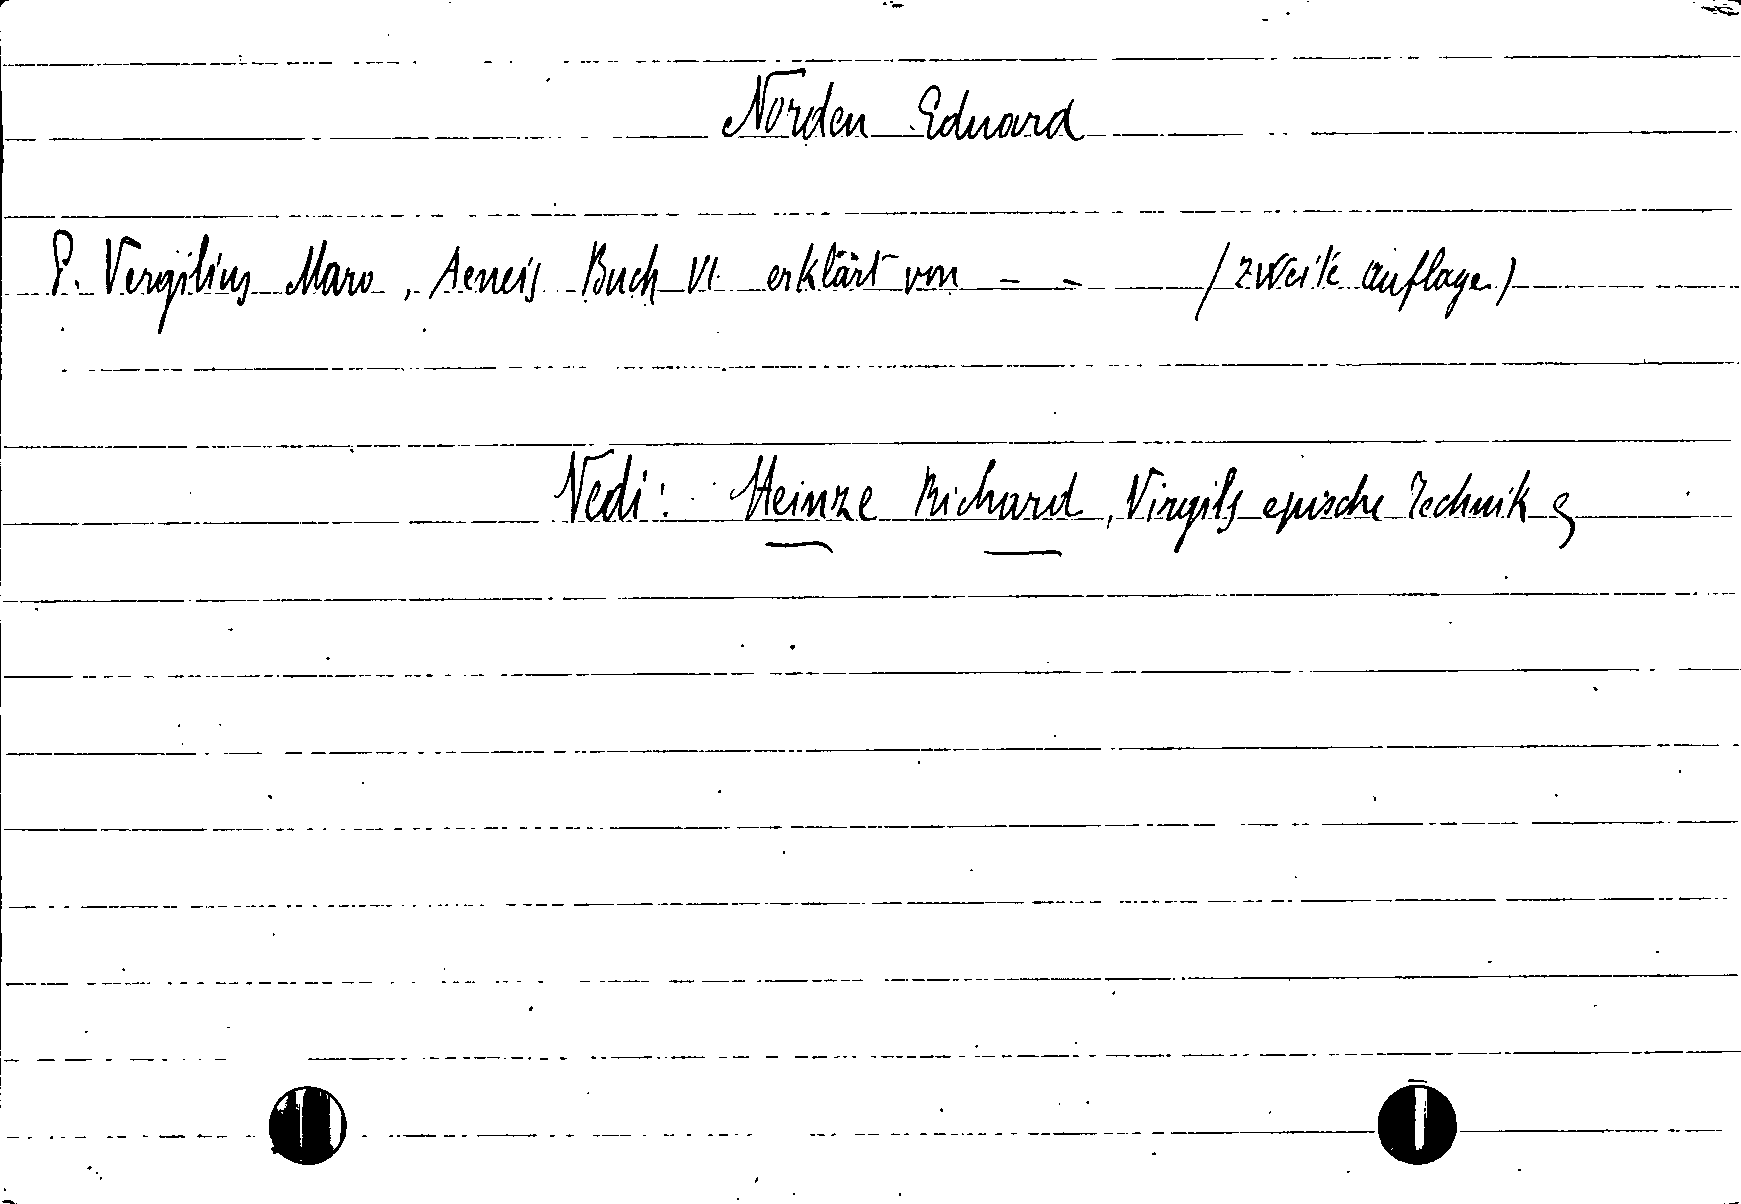 Norden Eduard
P. Vergilius Maro, Aeneis Buch VI erklärt von - - (zweite auflage)
Vedi: Heinze Richard, Virgils epische Technik